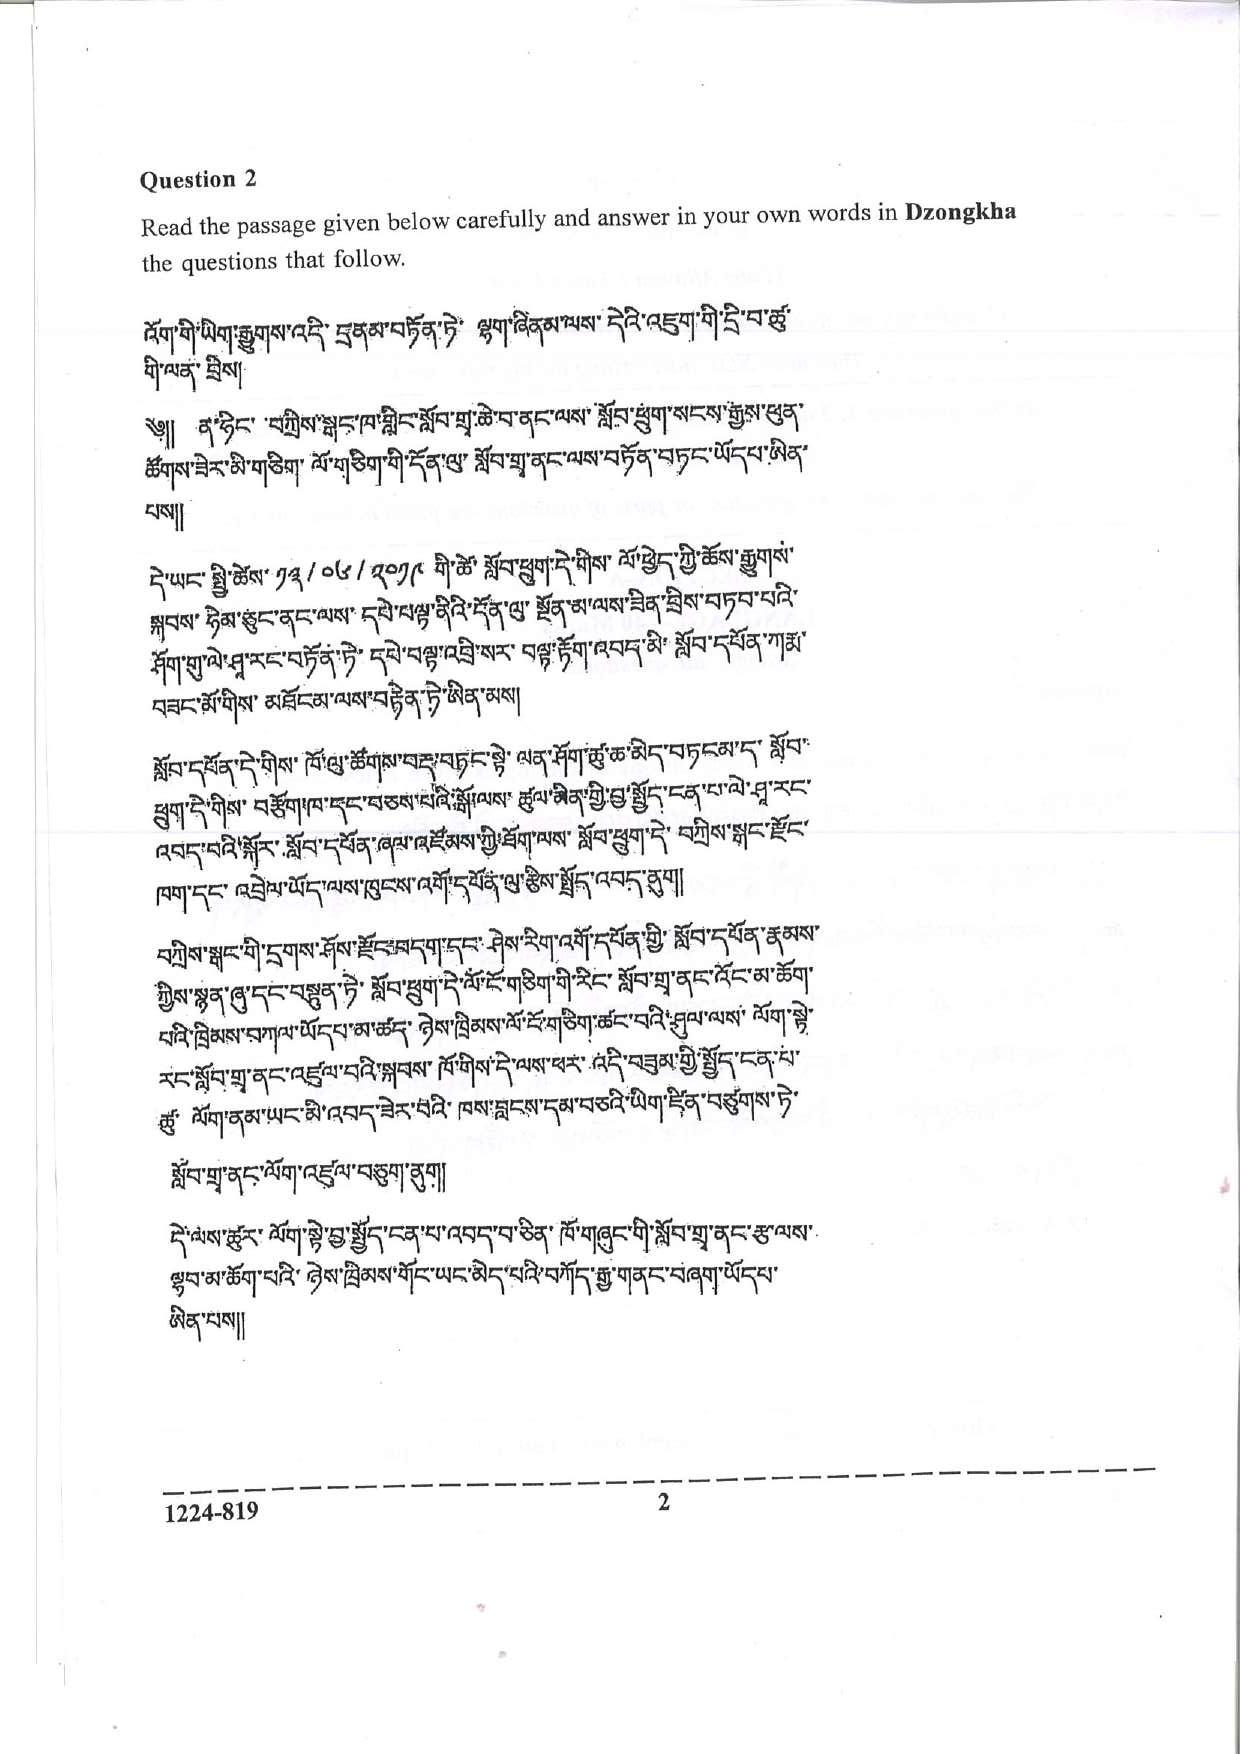 Question 2
Read the passage given below carefully and answer in your own words in Dzongkha
the questions that follow.
འོག་གི་ཡིག་རྒྱུགས་འདི་ དྲནམ་བཏོན་ཏེ་ ལྷག་ཞིནམ་ལས་ དེའི་འཇུག་གི་དྲི་བ་ཚུ་
གི་ལན་ བྲིས།
༄༅།། ན་ཧིང་ བཀྲིས་སྒང་ཁ་གླིང་སློབ་གྲྭ་ཆེ་བ་ནང་ལས་ སློབ་ཕྲུག་སངས་རྒྱས་ཕུན་
ཚོགས་ཟེར་མི་གཅིག་ ལོ་གཅིག་གི་དོན་ལུ་ སློབ་གྲྭ་ནང་ལས་བཏོན་བཏང་ཡོདཔ་ཨིན་
པས།།
དེ་ཡང་ སྤྱི་ཚེས་ ༡༣/༠༦/༢༠༡༩ གི་ཚེ་ སློབ་ཕྲུག་དེ་གིས་ ལོ་ཕྱེད་ཀྱི་ཆོས་རྒྱུགས་
སྐབས་ ཧེམ་ཅུང་ནང་ལས་ དཔེ་བལྟ་ནིའི་དོན་ལུ་ སྔོན་མ་ལས་ཟིན་བྲིས་བཏབ་པའི་
ཤོག་གུ་ལེ་ཤཱ་རང་བཏོན་ཏེ་ དཔེ་བལྟ་འབྲི་སར་ བལྟ་རྟོག་འབད་མི་ སློབ་དཔོན་ཀརྨ་
བཟང་མོ་གིས་ མཐོངམ་ལས་བརྟེན་ཏེ་ཨིན་མས།
སློབ་དཔོན་དེ་གིས་ ཁོ་ལུ་ཚོགས་བརྡ་བཏང་སྟེ་ ལན་ཤོག་ཚུ་ཆ་མེད་བཏངམ་ད་ སློབ་
ཕྲུག་དེ་གིས་ བརྩོག་ཁ་དང་བཅས་པའི་སྒོ་ལས་ ཚུལ་མིན་གྱི་བྱ་སྤྱོད་ངན་པ་ལེ་ཤཱ་རང་
འབད་བའི་སྐོར་ སློབ་དཔོན་ཞལ་འཛོམས་ཀྱི་ཐོག་ལས་ སློབ་ཕྲུག་དེ་ བཀྲིས་སྒང་རྫོང་
ཁག་དང་ འབྲེལ་ཡོད་ལས་ཁུངས་འགོ་དཔོན་ལུ་རྩིས་སྤྲོད་འབད་ནུག།
བཀྲིས་སྒང་གི་དྲགས་ཤོས་རྫོང་བདག་དང་ ཤེས་རིག་འགོ་དཔོན་གྱི་ སློབ་དཔོན་རྣམས་
ཀྱིས་སྙན་ཞུ་དང་བསྟུན་ཏེ་ སློབ་ཕྲུག་དེ་ལོ་ངོ་གཅིག་གི་རིང་ སློབ་གྲྭ་ནང་འོང་མ་ཆོག་
པའི་ཁྲིམས་བཀལ་ཡོདཔ་མ་ཚད་ ཉེས་ཁྲིམས་ལོ་ངོ་གཅིག་ཚང་བའི་ཤུལ་ལས་ ལོག་སྟེ་
རང་སློབ་གྲྭ་ནང་འཛུལ་བའི་སྐབས་ ཁོ་གིས་དེ་ལས་ཕར་ འདི་བཟུམ་གྱི་སྤྱོད་ངན་པ་
ཚུ་ ལོག་ནམ་ཡང་མི་འབད་ཟེར་བའི་ ཁས་བླངས་དམ་བཅའི་ཡིག་ཛིན་བཙུགས་ཏེ་
སློབ་གྲྭ་ནང་ལོག་འཛུལ་བཅུག་ནུག།
དེ་ལས་ཚུར་ ལོག་སྟེ་བྱ་སྤྱོད་ངན་པ་འབད་བ་ཅིན་ ཁོ་གཞུང་གི་སློབ་གྲྭ་ནང་རྩ་ལས་
ལྷབ་མ་ཆོག་པའི་ ཉེས་ཁྲིམས་གོང་ཡང་མེད་པའི་བཀོད་རྒྱ་གནང་བཞག་ཡོདཔ་
ཨིན་པས།།
1224-819
2